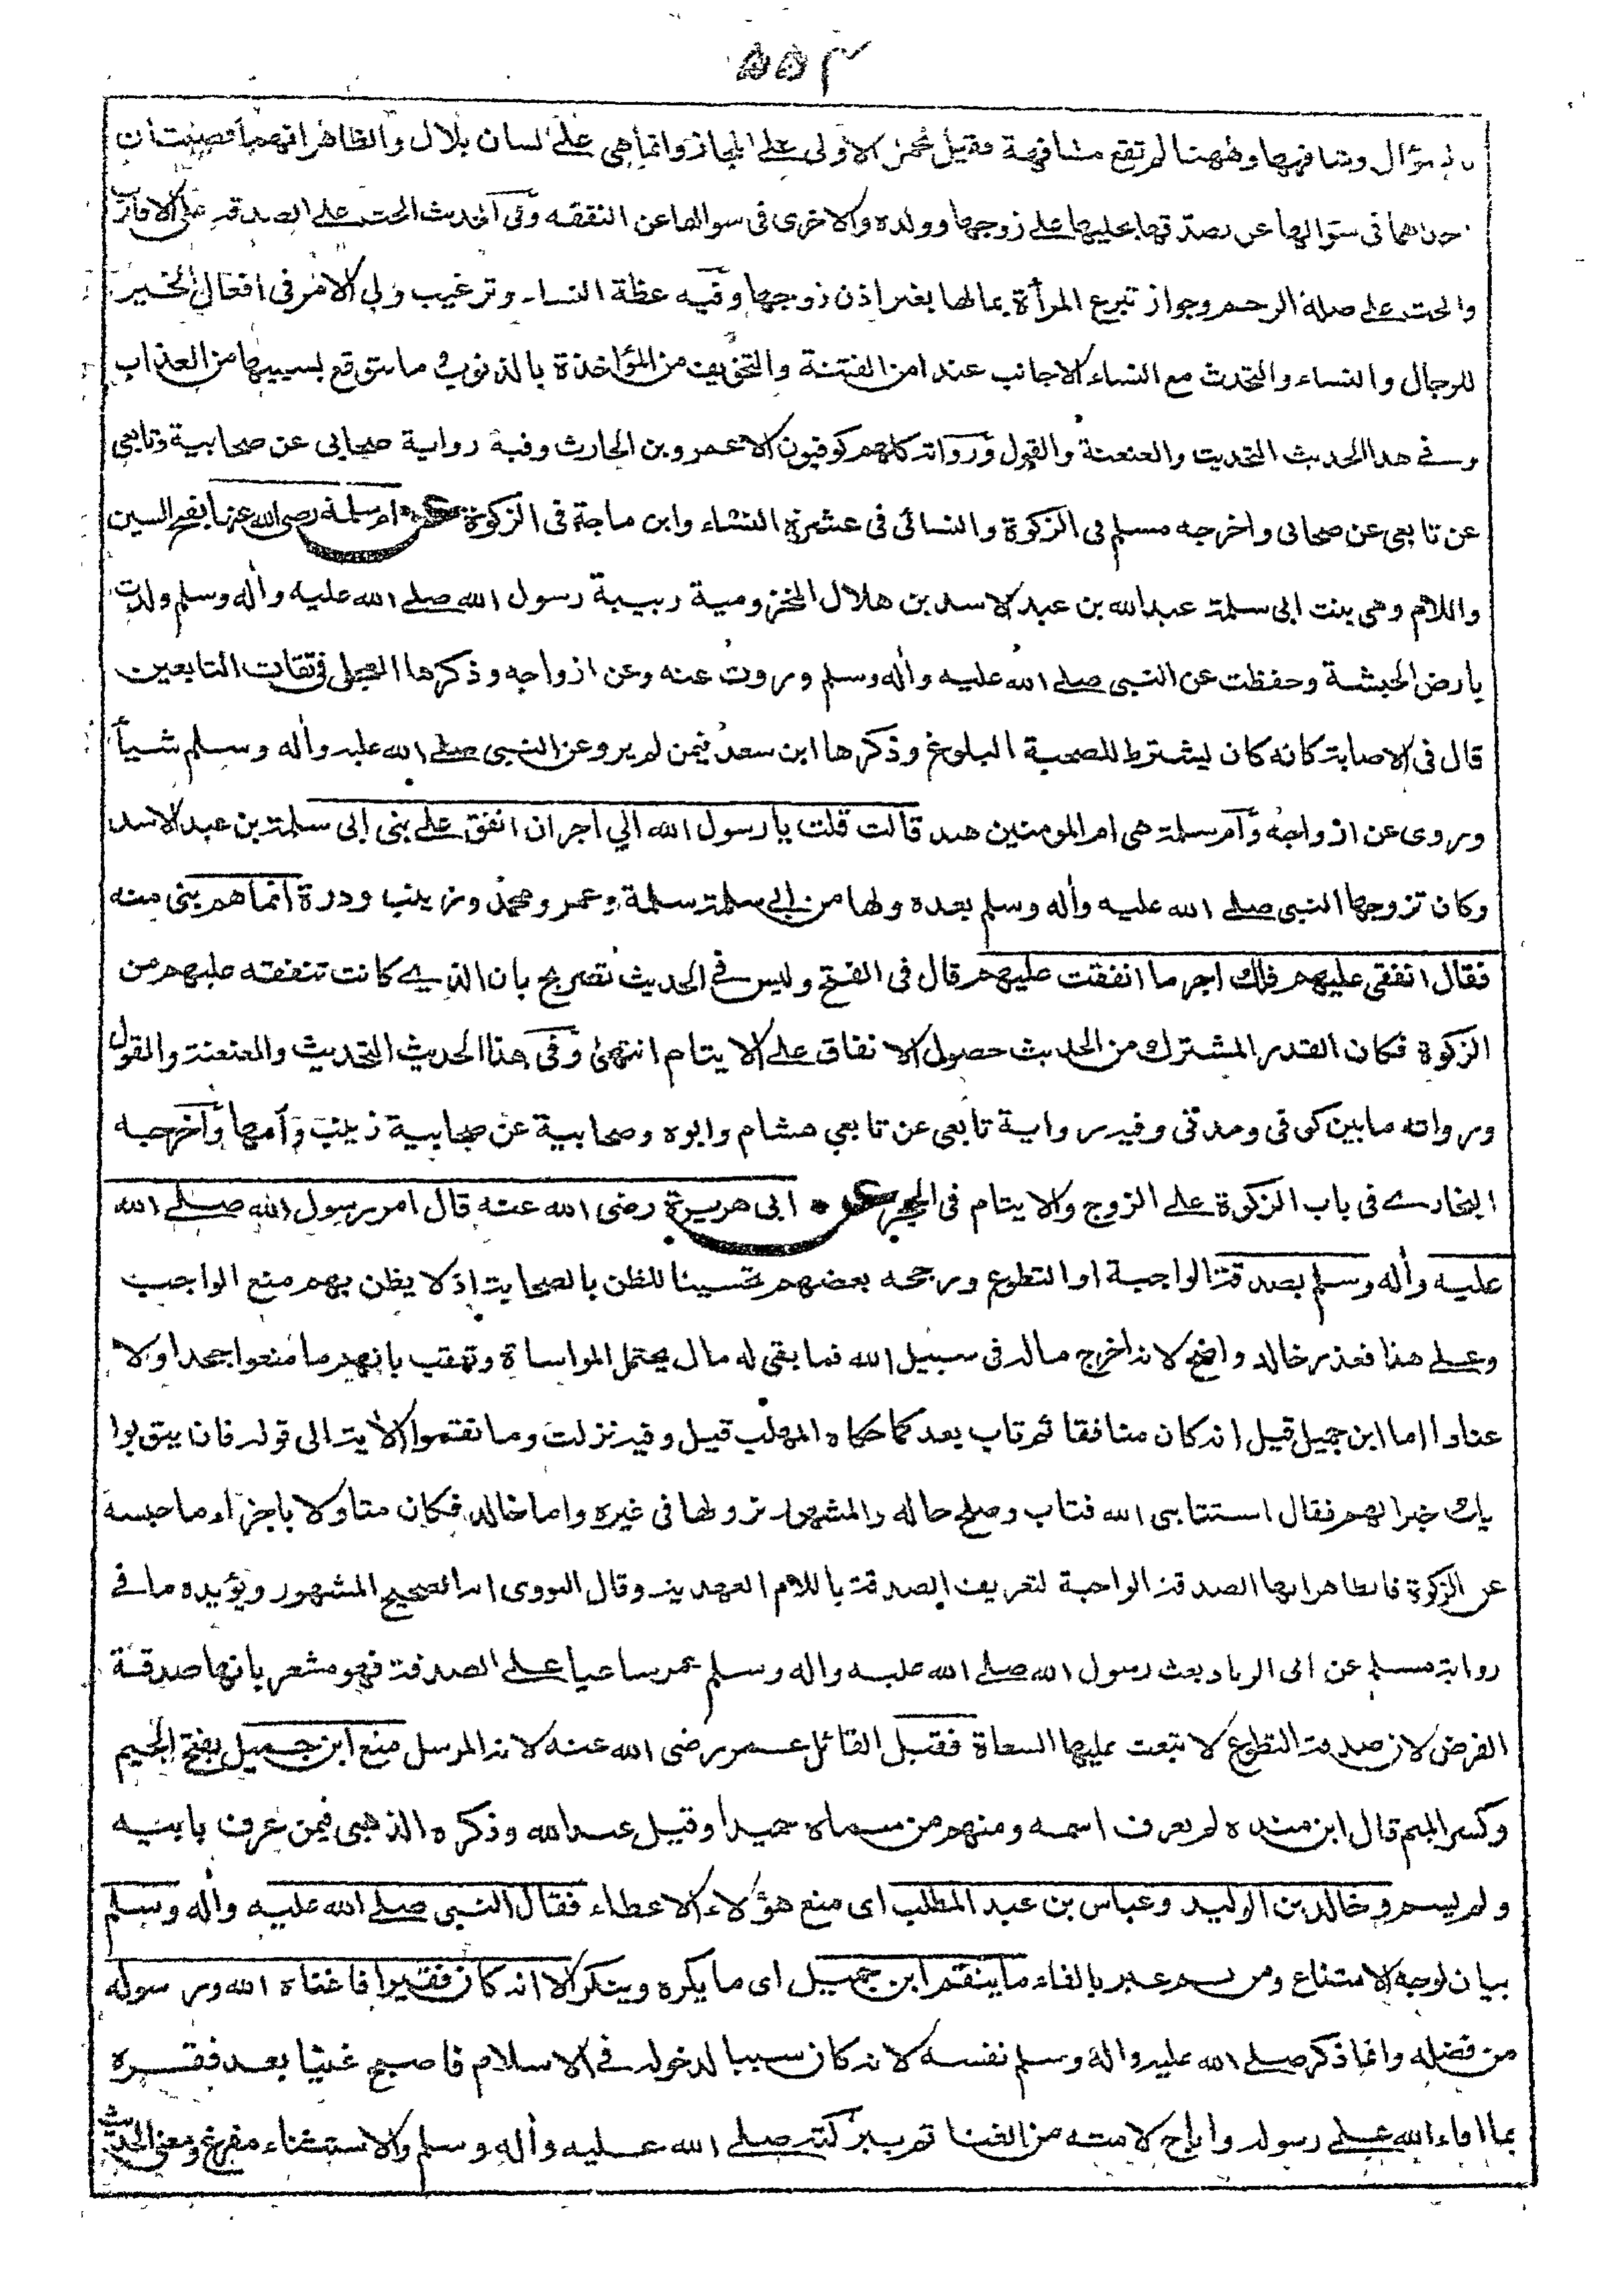 ٥٥٣
السؤال وشافهها وههنا لم تقع مشافهة فقيل تحمل الاولى على المجاز وانما هى على لسان بلال والظاهر انهما قضيتان
احداهما فى سؤالها عن تصدقها بحليها على زوجها وولده والاخرى فى سوالها عن النفقه وفى الحديث الحث على الصدقة على الاقارب
والحث على صلة الرحم وجواز تبرع المرأة بمالها بغير اذن زوجها وفيه عظة النساء وترغيب ولى الامر فى افعال الخير
للرجال والنساء والتحدث مع النساء الاجانب عند امن الفتنة والتخويف من المؤاخذة بالذنوب وما يتوقع بسببها من العذاب
وفے هذا الحديث التحديث والعنعنة والقول ورواته كلهم كوفيون الا عمرو بن الحارث وفيه رواية صحابى عن صحابية وتابعى
عن تابعى عن صحابى واخرجه مسلم فى الزكوة والنسائى فى عشرة النساء وابن ماجة فى الزكوة عن ام سلمة رضى الله عنها بفتح السين
واللام وهى بنت ابى سلمة عبدالله بن عبد الاسد بن هلال المخزومية ربيبة رسول الله صلے الله عليه واله وسلم ولدت
بارض الحبشة وحفظت عن النبى صلے الله عليه واله وسلم وروت عنه وعن ازواجه وذكرها العجلى فى ثقات التابعين
قال فى الاصابة كانه كان يشترط للصحبة البلوغ وذكرها ابن سعد فيمن لم يرو عن النبى صلے الله عليه واله وسلم شيأ
وروى عن ازواجه وام سلمة هى ام المومنين هند قالت قلت يا رسول الله الي اجر ان انفق على بنى ابى سلمة بن عبد الاسد
وكان تزوجها النبى صلے الله عليه واله وسلم بعده ولها من ابى سلمة سلمة وعمر ومحمد وزينب ودرة انما هم بنى منه
فقال انفقى عليهم فلك اجر ما انفقت عليهم قال فى الفتح وليس فے الحديث تصريح بان الذي كانت تنفقه عليهم من
الزكوة فكان القدر المشترك من الحديث حصول الانفاق على الايتام انتهى وفى هذا الحديث التحديث والعنعنة والقول
ورواته ما بين كوفى ومدنى وفيه رواية تابعى عن تابعي هشام وابوه وصحابية عن صحابية زينب وامها واخرجه
البخارے فى باب الزكوة على الزوج والايتام فى الحجر عن ابى هريرة رضى الله عنه قال امر رسول الله صلے الله
عليه واله وسلم بصدقة الواجبة او التطوع ورجحه بعضهم تحسينا للظن بالصحابة اذ لا يظن بهم منع الواجب
وعلى هذا فعذر خالد واضح لانه اخرج ماله فى سبيل الله فما بقى له مال يحتمل المواساة وتعقب بانهم ما منعوا جحدا ولا
عنادا اما ابن جميل قيل انه كان منافقا ثم تاب بعد كما حكاه المهلب قيل وفيه نزلت وما نقموا الاية الى قوله فان يتوبوا
يك خيرا لهم فقال استتابنى الله فتاب وصلح حاله والمشهور نزولها فى غيره واما خالد فكان متاولا باجزاء ما حبسه
عن الزكوة فالظاهر انها الصدقة الواجبة لتعريف الصدقة باللام العهدية وقال النووى انه الصحيح المشهور ويؤيده ما فے
رواية مسلم عن ابى الزناد بعث رسول الله صلے الله عليه واله وسلم عمر ساعيا على الصدقة فهو مشعر بانها صدقة
الفرض لان صدقة التطوع لا تبعث عليها السعاة فقيل القائل عمر رضى الله عنه لانه المرسل منع ابن جميل بفتح الجيم
وكسر الميم قال ابن منده لم يعرف اسمه ومنهم من سماه حميدا وقيل عبدالله وذكره الذهبى فيمن عرف بابيه
ولم يسم وخالد بن الوليد وعباس بن عبد المطلب اى منع هؤلاء الاعطاء فقال النبى صلے الله عليه واله وسلم
بيان لوجه الامتناع ومن ثم عبر بالفاء ما ينقم ابن جميل اى ما يكره وينكر الا انه كان فقيرا فاغناه الله ورسوله
من فضله وانما ذكر صلے الله عليه واله وسلم نفسه لانه كان سببا لدخوله فے الاسلام فاصبح غنيا بعد فقره
بما افاء الله على رسوله واباح لامته من الغنائم ببركته صلے الله عليه واله وسلم والاستثناء مفرغ ومعنى الحديث